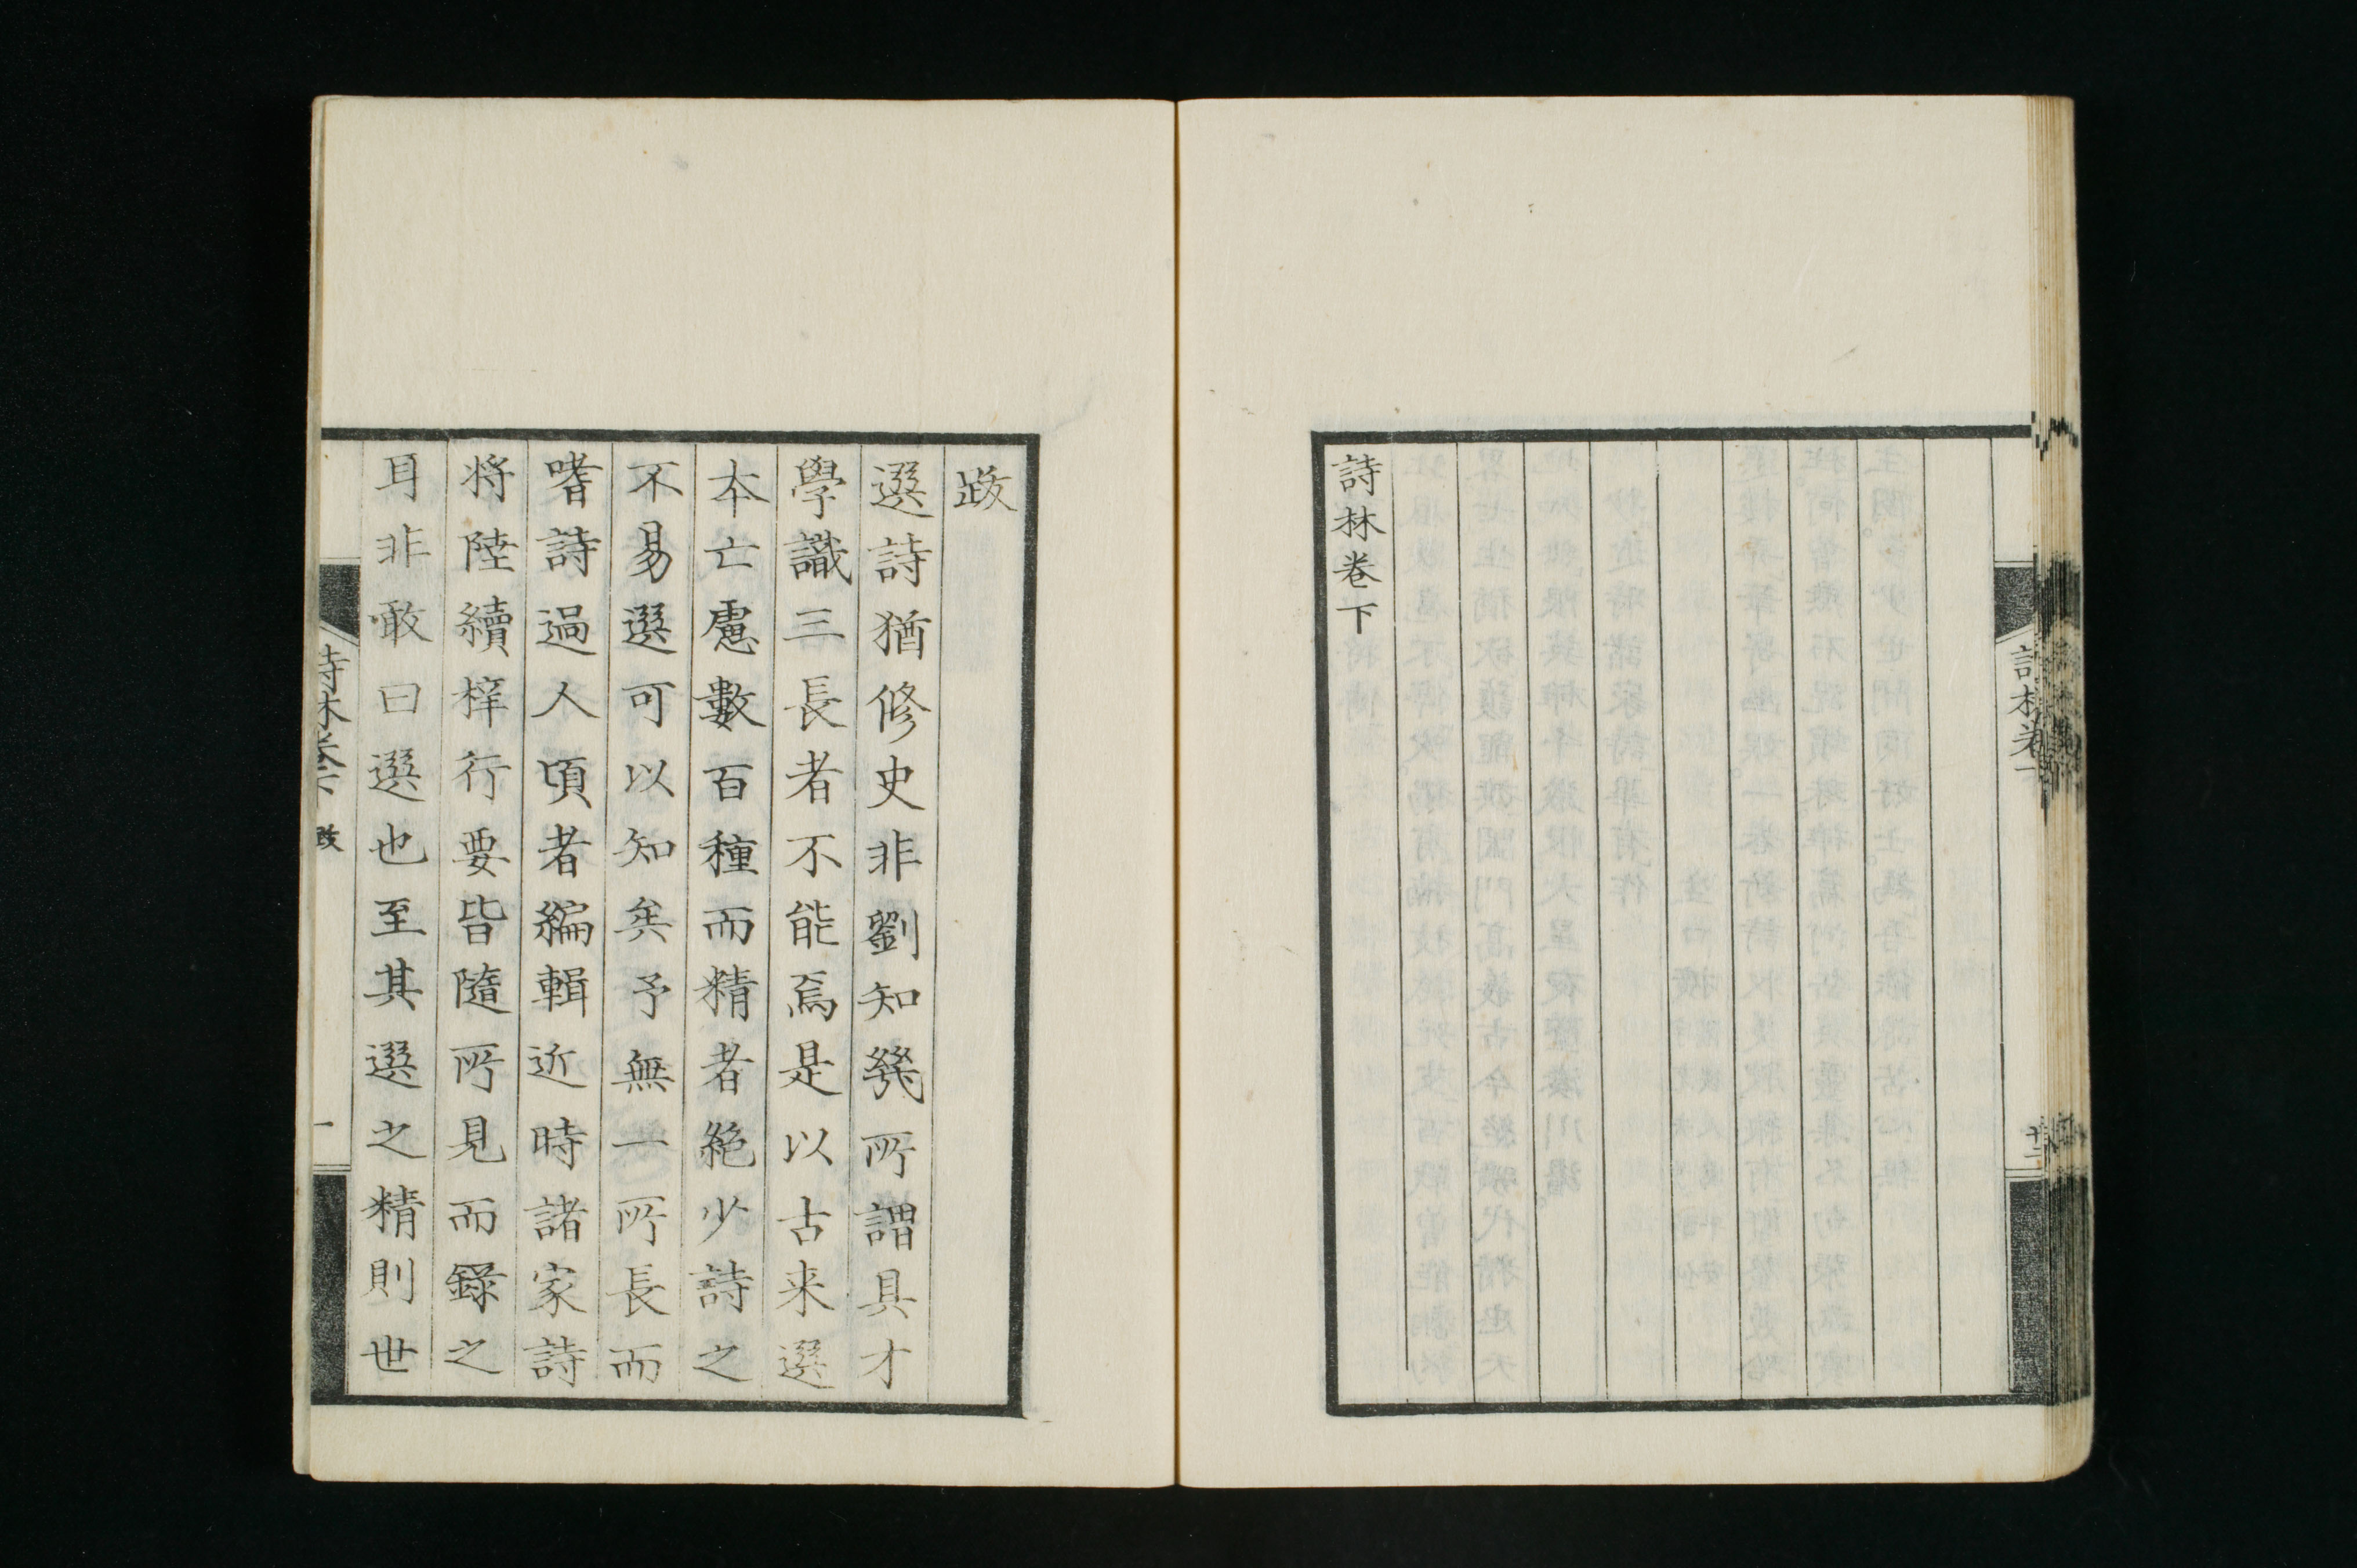 詩林卷下
跋
選詩猶修史非劉知幾所謂具才
學識三長者不能焉是以古来選
本亡慮數百種而精者絶少詩之
不易選可以知矣予無一所長而
嗜詩過人頃者編輯近時諸家詩
将陸續梓行要皆隨所見而錄之
耳非敢曰選也至其選之精則世
詩林卷下 跋
一